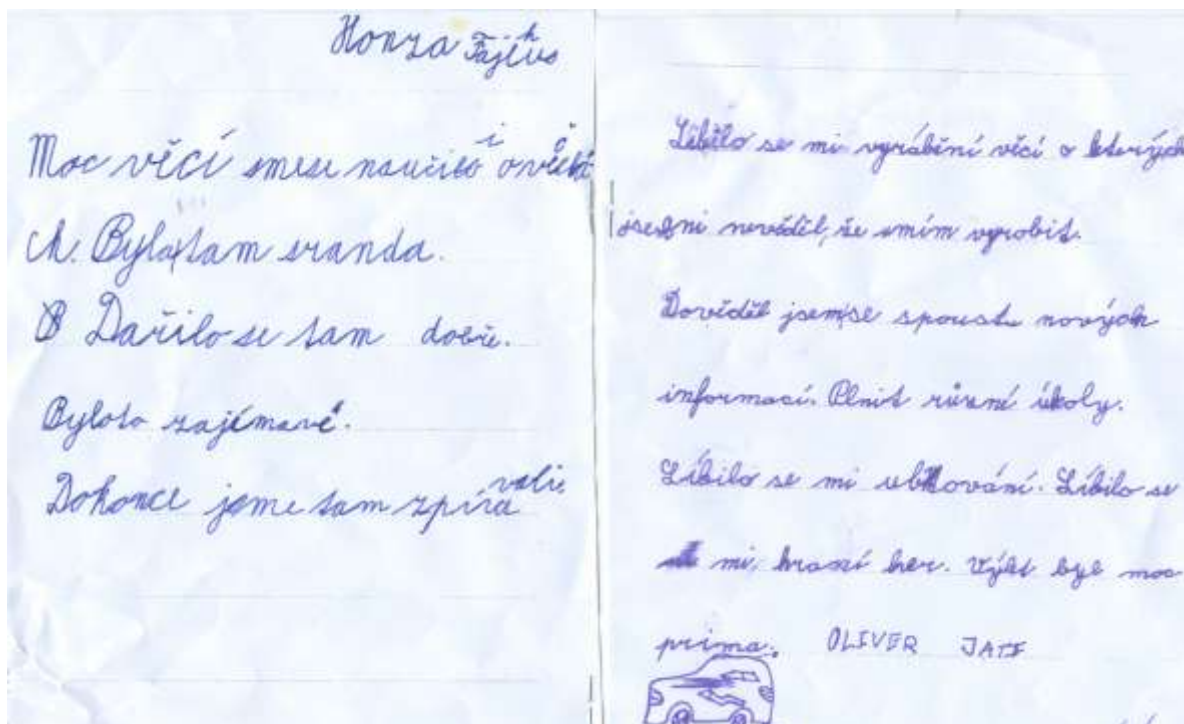 Honza Fajkus
Moc věcí smese naučili o včelá
ch. Byla tam sranda.
Dařilo se tam dobře.
Byloto zajímavé.
Dokonce jsme tam zpívali.
Líbilo se mi vyrábění věcí o kterých
jsem ni nevěděl, že smím vyrobit.
Dověděl jsem se spoustu nových
informací. Plnit různí úkoly.
Líbilo se mi. Líbilo se
mi, hraní her. Výlet byl moc
prima. OLIVER